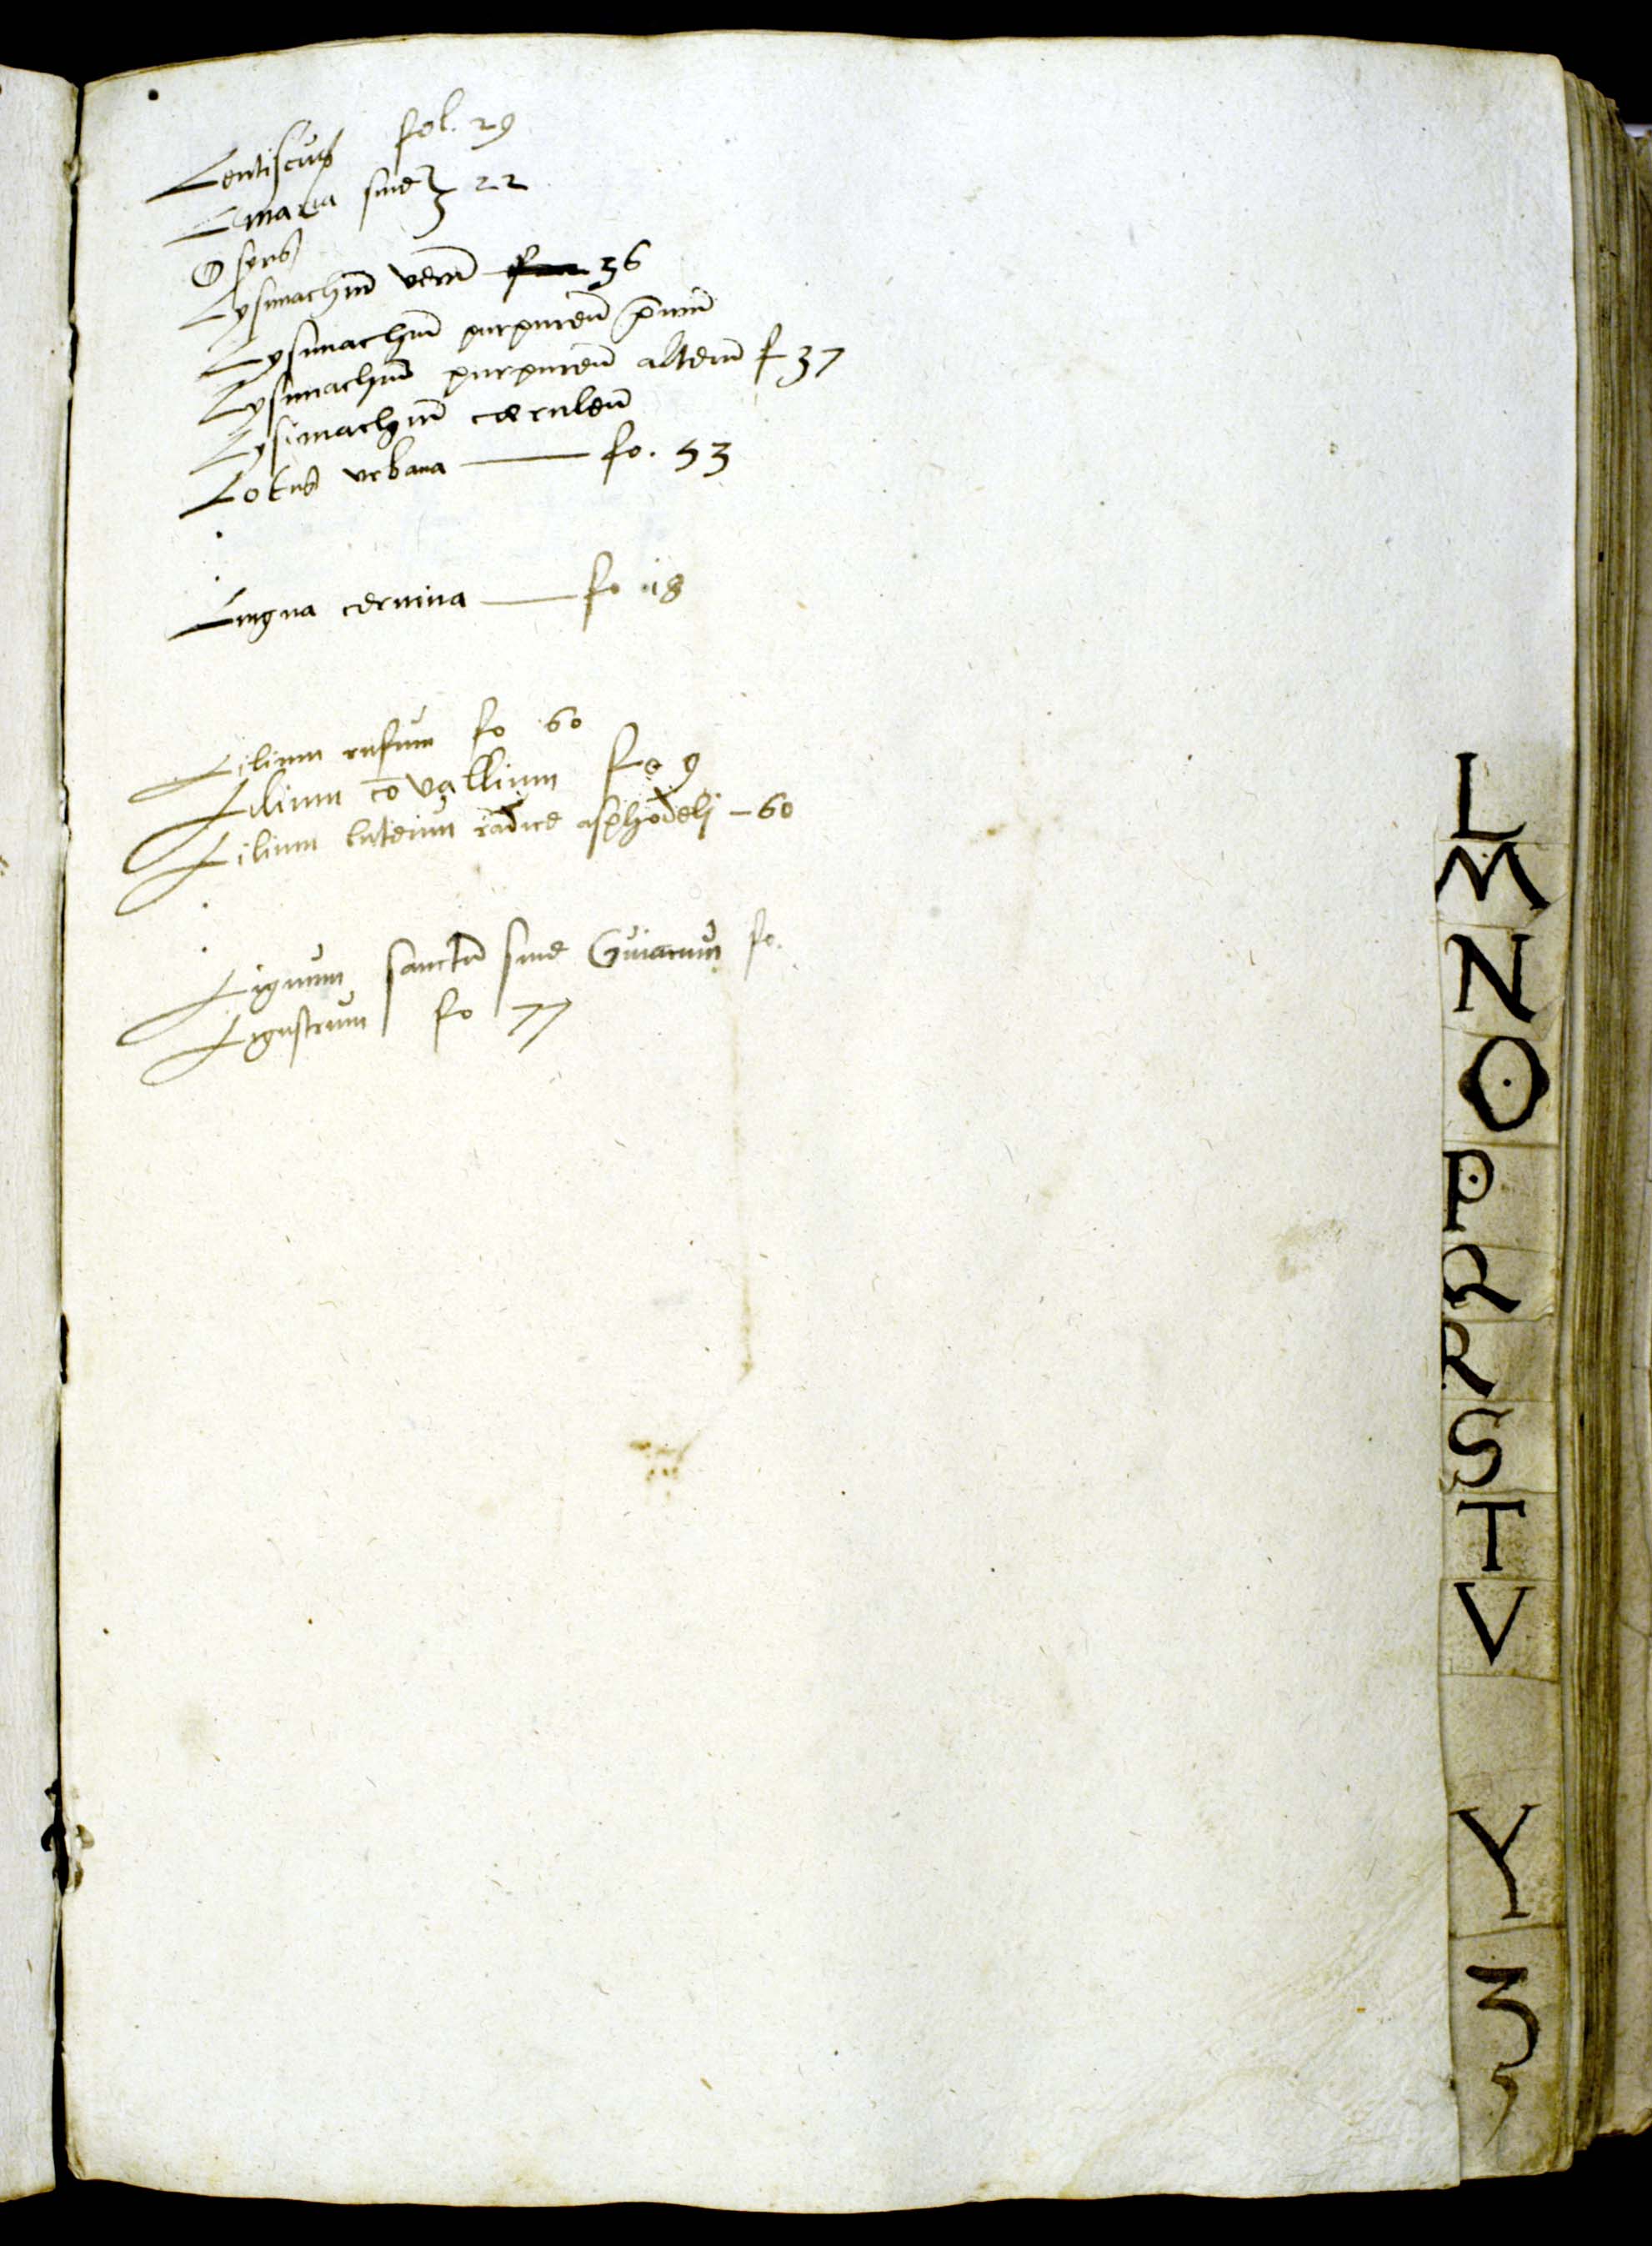 Lentiscus fol. 29
Linaria siue } 22
Osyris
Lysimachiũ verũ 36
Lysimachiũ purpureũ p̃imũ
Lysimachiũ purpureũ alterũ f 37
Lysimachiũ cæruleũ
Lotus vrbana — fo. 53
Lingua ceruina — fo 18
Lilium rufum fo 60
Lilium cōvallium fo 9
Lilium luteum radice asphodeli - 60
Lignum sanctũ siue Guiacum fo.
Ligustrum fo 77
L
M
N
O
P
Q
R
S
T
V
Y
Z